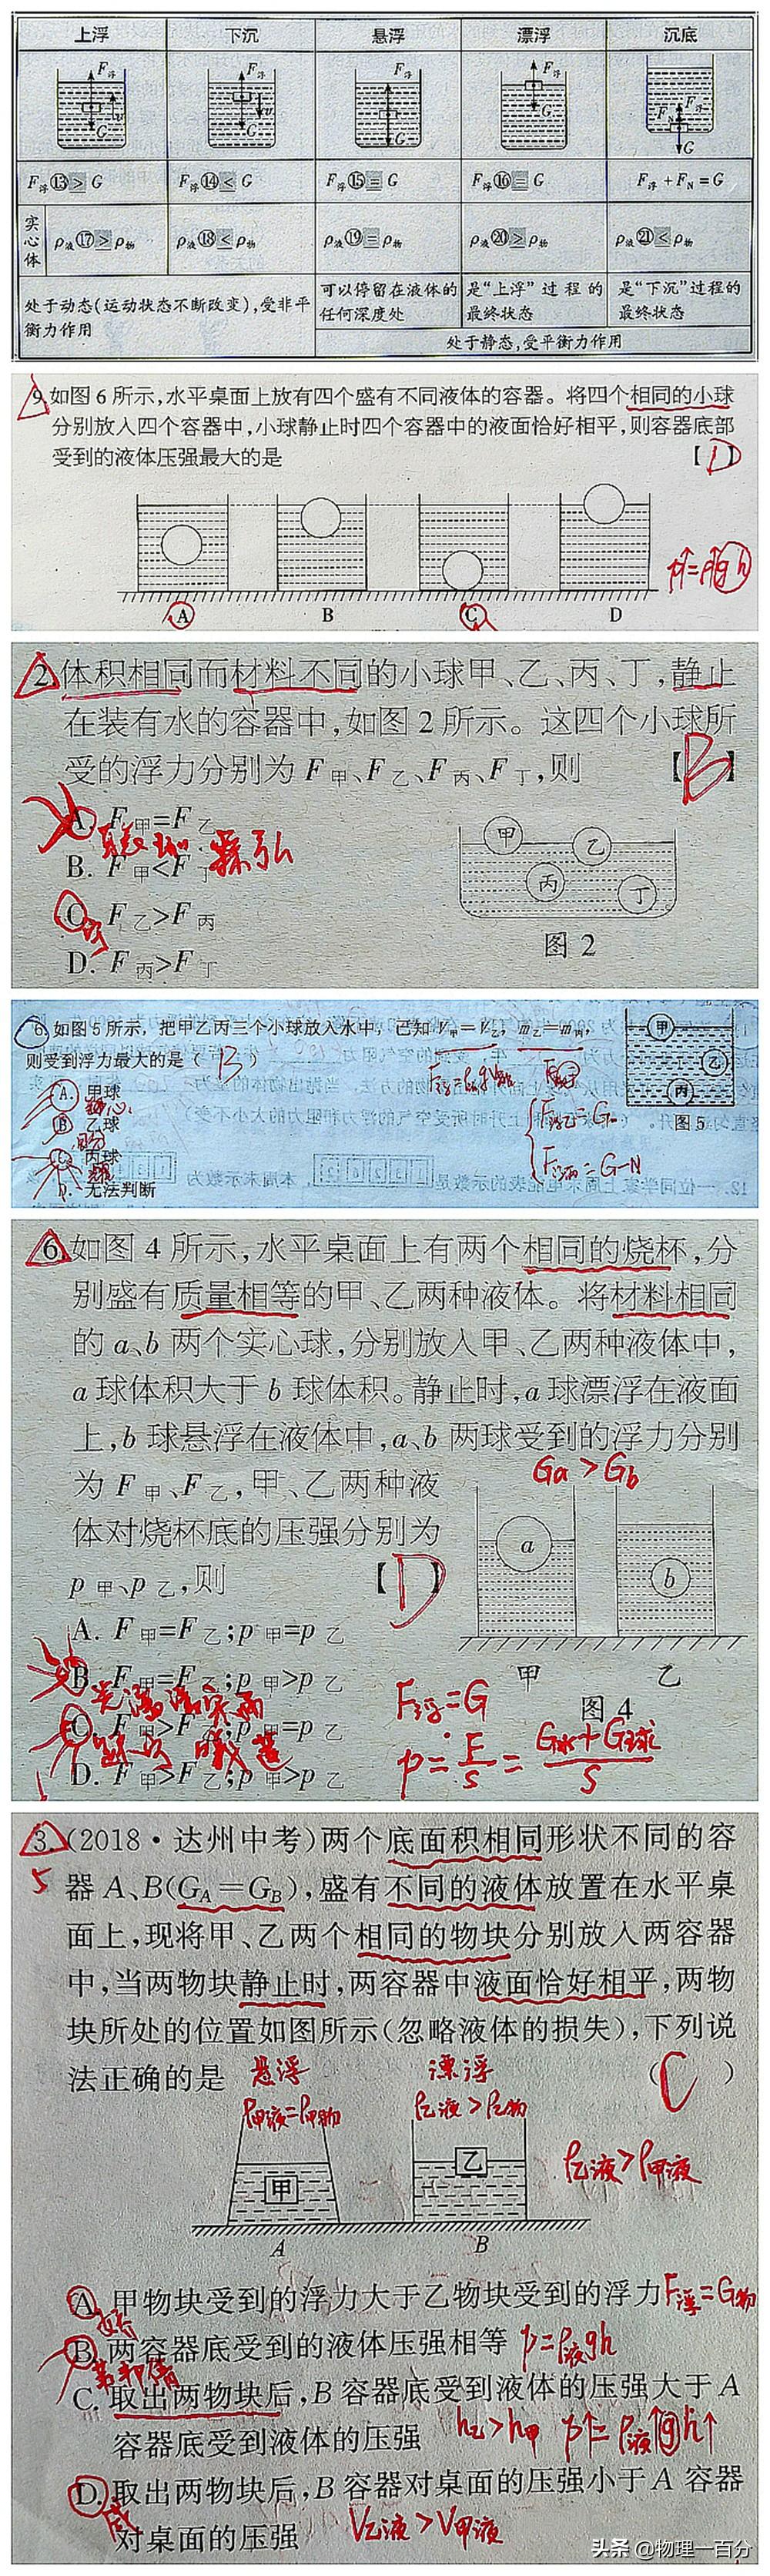 上浮 下沉 悬浮 漂浮 沉底
F浮 v G F浮 v G F浮 G F浮 G F浮 FN G
F浮⑬>G F浮⑭<G F浮⑮=G F浮⑯=G F浮+FN=G
实心体 ρ液⑰>ρ物 ρ液⑱<ρ物 ρ液⑲=ρ物 ρ液⑳>ρ物 ρ液㉑<ρ物
处于动态(运动状态不断改变),受非平衡力作用
可以停留在液体的任何深度处
是“上浮”过程的最终状态
是“下沉”过程的最终状态
处于静态,受平衡力作用
9.如图6所示,水平桌面上放有四个盛有不同液体的容器。将四个相同的小球
分别放入四个容器中,小球静止时四个容器中的液面恰好相平,则容器底部
受到的液体压强最大的是 【D】
p↑=ρ↑gh
A B C D
2.体积相同而材料不同的小球甲、乙、丙、丁,静止
在装有水的容器中,如图2所示。这四个小球所
受的浮力分别为F甲、F乙、F丙、F丁,则 【B】
A. F甲=F乙
B. F甲<F丁
C. F乙>F丙
D. F丙>F丁
甲 乙 丙 丁
图2
6.如图5所示,把甲乙丙三个小球放入水中,已知V甲=V乙,m乙=m丙,
则受到浮力最大的是(B)
A.甲球
B.乙球
C.丙球
D.无法判断
F浮乙=G乙
F浮丙=G-N
甲 乙 丙
图5
6.如图4所示,水平桌面上有两个相同的烧杯,分
别盛有质量相等的甲、乙两种液体。将材料相同
的a、b两个实心球,分别放入甲、乙两种液体中,
a球体积大于b球体积。静止时,a球漂浮在液面
上,b球悬浮在液体中,a、b两球受到的浮力分别
为F甲、F乙,甲、乙两种液
体对烧杯底的压强分别为
p甲、p乙,则 【D】
Ga>Gb
a b
甲 乙
图4
A. F甲=F乙;p甲=p乙
B. F甲=F乙;p甲>p乙
C. F甲>F乙;p甲=p乙
D. F甲>F乙;p甲>p乙
F浮=G
p=F/S=(G水+G球)/S
3.(2018·达州中考)两个底面积相同形状不同的容
5
器A、B(GA=GB),盛有不同的液体放置在水平桌
面上,现将甲、乙两个相同的物块分别放入两容器
中,当两物块静止时,两容器中液面恰好相平,两物
块所处的位置如图所示(忽略液体的损失),下列说
法正确的是 (C)
悬浮 漂浮
ρ甲液=ρ甲物 ρ乙液>ρ乙物
ρ乙液>ρ甲液
甲 乙
A B
A.甲物块受到的浮力大于乙物块受到的浮力 F浮=G物
B.两容器底受到的液体压强相等 p=ρ液gh
C.取出两物块后,B容器底受到液体的压强大于A
容器底受到液体的压强 h乙>h甲 p↑=ρ液↑gh↑
D.取出两物块后,B容器对桌面的压强小于A容器
对桌面的压强 V乙液>V甲液
头条 @物理一百分